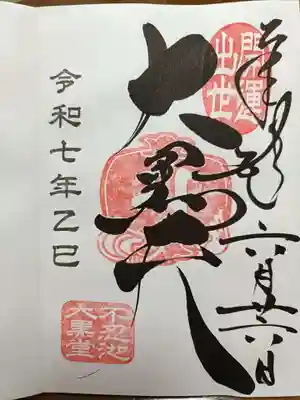 六月廿六日
開運
出世
大黒天
令和七年乙巳
不忍池
大黒堂